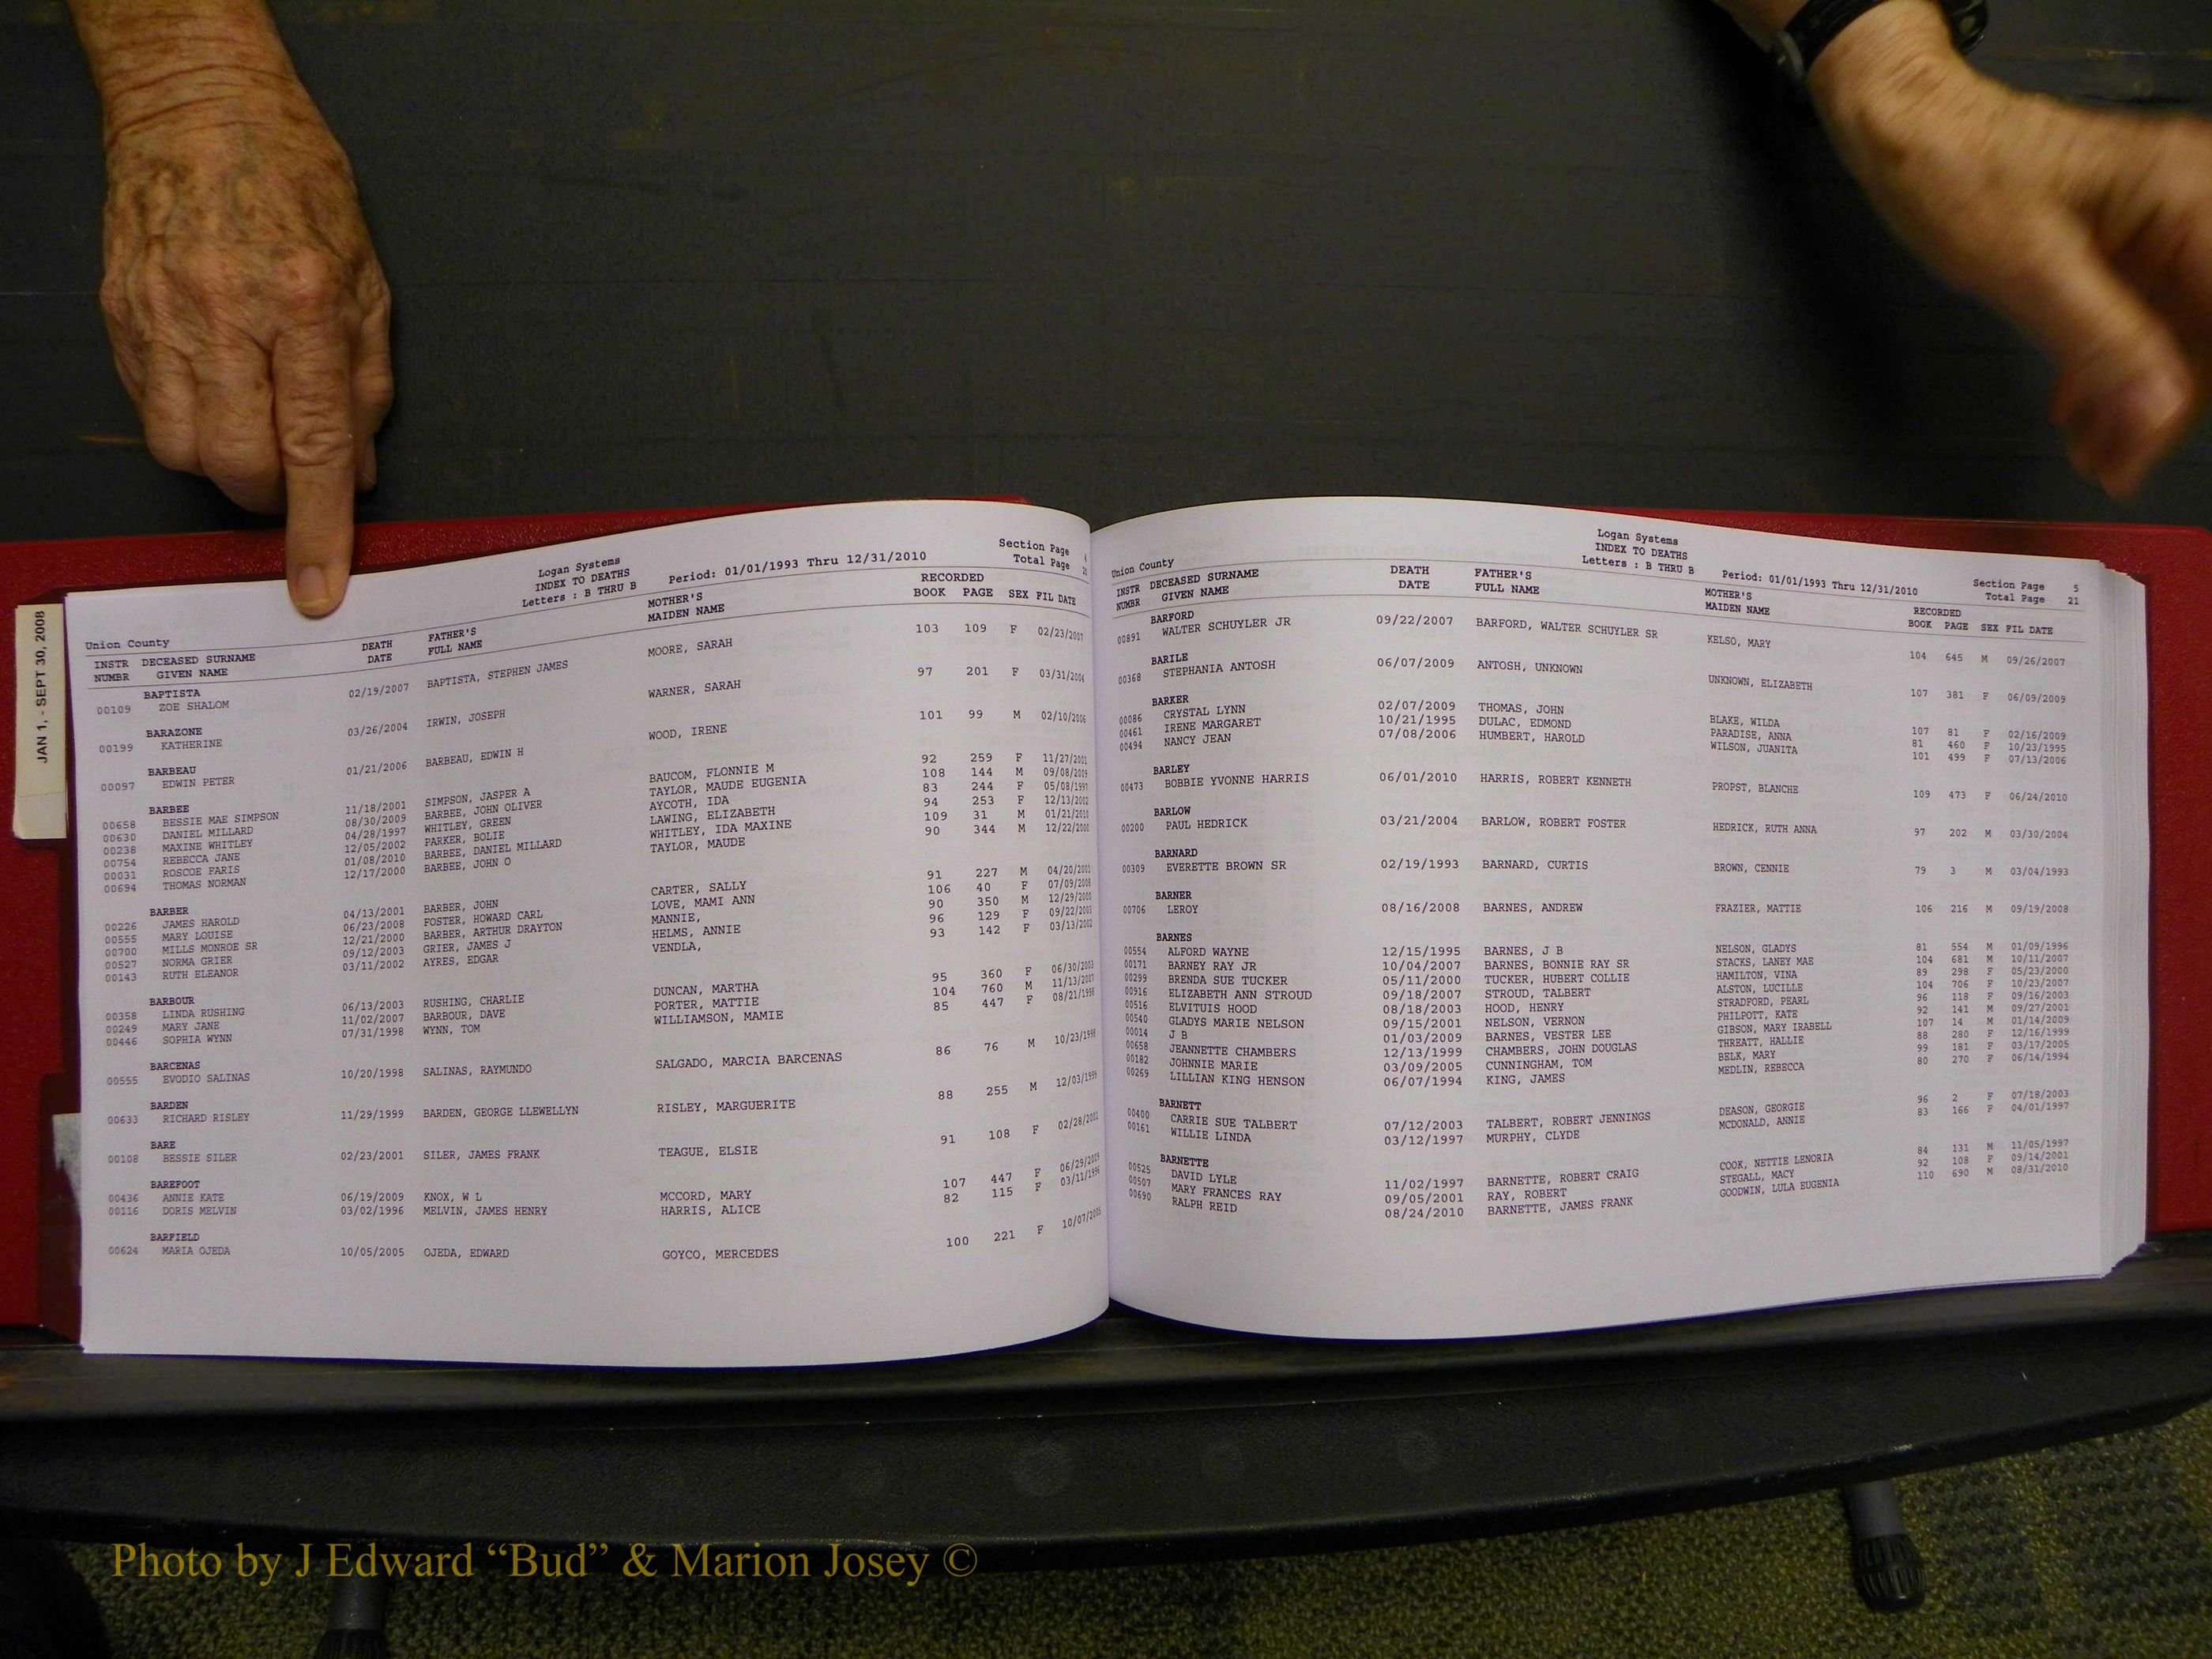 JAN 1, - SEPT 30, 2008
Logan Systems
INDEX TO DEATHS
Letters : B THRU B
Period: 01/01/1993 Thru 12/31/2010
Section Page
Total Page
Union County
INSTR NUMBR DECEASED SURNAME GIVEN NAME DEATH DATE FATHER'S FULL NAME MOTHER'S MAIDEN NAME RECORDED BOOK PAGE SEX FIL DATE
BAPTISTA
00109 ZOE SHALOM 02/19/2007 BAPTISTA, STEPHEN JAMES MOORE, SARAH 103 109 F 02/23/2007
BARAZONE
00199 KATHERINE 03/26/2004 IRWIN, JOSEPH WARNER, SARAH 97 201 F 03/31/2004
BARBEAU
00097 EDWIN PETER 01/21/2006 BARBEAU, EDWIN H WOOD, IRENE 101 99 M 02/10/2006
BARBEE
00658 BESSIE MAE SIMPSON 11/18/2001 SIMPSON, JASPER A BAUCOM, FLONNIE M 92 259 F 11/27/2001
00630 DANIEL MILLARD 08/30/2009 BARBEE, JOHN OLIVER TAYLOR, MAUDE EUGENIA 108 144 M 09/08/2009
00238 MAXINE WHITLEY 04/28/1997 WHITLEY, GREEN AYCOTH, IDA 83 244 F 05/08/1997
00754 REBECCA JANE 12/05/2002 PARKER, BOLIE LAWING, ELIZABETH 94 253 F 12/13/2002
00031 ROSCOE FARIS 01/08/2010 BARBEE, DANIEL MILLARD WHITLEY, IDA MAXINE 109 31 M 01/21/2010
00694 THOMAS NORMAN 12/17/2000 BARBEE, JOHN O TAYLOR, MAUDE 90 344 M 12/22/2000
BARBER
00226 JAMES HAROLD 04/13/2001 BARBER, JOHN CARTER, SALLY 91 227 M 04/20/2001
00555 MARY LOUISE 06/23/2008 FOSTER, HOWARD CARL LOVE, MAMI ANN 106 40 F 07/09/2008
00700 MILLS MONROE SR 12/21/2000 BARBER, ARTHUR DRAYTON MANNIE, 90 350 M 12/29/2000
00527 NORMA GRIER 09/12/2003 GRIER, JAMES J HELMS, ANNIE 96 129 F 09/22/2003
00143 RUTH ELEANOR 03/11/2002 AYRES, EDGAR VENDLA, 93 142 F 03/13/2002
BARBOUR
00358 LINDA RUSHING 06/13/2003 RUSHING, CHARLIE DUNCAN, MARTHA 95 360 F 06/30/2003
00249 MARY JANE 11/02/2007 BARBOUR, DAVE PORTER, MATTIE 104 760 M 11/13/2007
00446 SOPHIA WYNN 07/31/1998 WYNN, TOM WILLIAMSON, MAMIE 85 447 F 08/21/1998
BARCENAS
00555 EVODIO SALINAS 10/20/1998 SALINAS, RAYMUNDO SALGADO, MARCIA BARCENAS 86 76 M 10/23/1998
BARDEN
00633 RICHARD RISLEY 11/29/1999 BARDEN, GEORGE LLEWELLYN RISLEY, MARGUERITE 88 255 M 12/03/1999
BARE
00108 BESSIE SILER 02/23/2001 SILER, JAMES FRANK TEAGUE, ELSIE 91 108 F
BAREFOOT
00436 ANNIE KATE 06/19/2009 KNOX, W L MCCORD, MARY 107 447 F 06/29/2009
00116 DORIS MELVIN 03/02/1996 MELVIN, JAMES HENRY HARRIS, ALICE 82 115 F 03/11/1996
BARFIELD
00624 MARIA OJEDA 10/05/2005 OJEDA, EDWARD GOYCO, MERCEDES 100 221 F 10/07/2005
Logan Systems
INDEX TO DEATHS
Letters : B THRU B
Period: 01/01/1993 Thru 12/31/2010
Section Page 5
Total Page 21
Union County
INSTR NUMBR DECEASED SURNAME GIVEN NAME DEATH DATE FATHER'S FULL NAME MOTHER'S MAIDEN NAME RECORDED BOOK PAGE SEX FIL DATE
BARFORD
00891 WALTER SCHUYLER JR 09/22/2007 BARFORD, WALTER SCHUYLER SR KELSO, MARY 104 645 M 09/26/2007
BARILE
00368 STEPHANIA ANTOSH 06/07/2009 ANTOSH, UNKNOWN UNKNOWN, ELIZABETH 107 381 F 06/09/2009
BARKER
00086 CRYSTAL LYNN 02/07/2009 THOMAS, JOHN BLAKE, WILDA 107 81 F 02/16/2009
00461 IRENE MARGARET 10/21/1995 DULAC, EDMOND PARADISE, ANNA 81 460 F 10/23/1995
00494 NANCY JEAN 07/08/2006 HUMBERT, HAROLD WILSON, JUANITA 101 499 F 07/13/2006
BARLEY
00473 BOBBIE YVONNE HARRIS 06/01/2010 HARRIS, ROBERT KENNETH PROPST, BLANCHE 109 473 F 06/24/2010
BARLOW
00200 PAUL HEDRICK 03/21/2004 BARLOW, ROBERT FOSTER HEDRICK, RUTH ANNA 97 202 M 03/30/2004
BARNARD
00309 EVERETTE BROWN SR 02/19/1993 BARNARD, CURTIS BROWN, CENNIE 79 3 M 03/04/1993
BARNER
00706 LEROY 08/16/2008 BARNES, ANDREW FRAZIER, MATTIE 106 216 M 09/19/2008
BARNES
00554 ALFORD WAYNE 12/15/1995 BARNES, J B NELSON, GLADYS 81 554 M 01/09/1996
00171 BARNEY RAY JR 10/04/2007 BARNES, BONNIE RAY SR STACKS, LANEY MAE 104 681 M 10/11/2007
00299 BRENDA SUE TUCKER 05/11/2000 TUCKER, HUBERT COLLIE HAMILTON, VINA 89 298 F 05/23/2000
00916 ELIZABETH ANN STROUD 09/18/2007 STROUD, TALBERT ALSTON, LUCILLE 104 706 F 10/23/2007
00516 ELVITUIS HOOD 08/18/2003 HOOD, HENRY STRADFORD, PEARL 96 118 F 09/16/2003
00540 GLADYS MARIE NELSON 09/15/2001 NELSON, VERNON PHILPOTT, KATE 92 141 M 09/27/2001
00014 J B 01/03/2009 BARNES, VESTER LEE GIBSON, MARY IRABELL 107 14 M 01/14/2009
00658 JEANNETTE CHAMBERS 12/13/1999 CHAMBERS, JOHN DOUGLAS THREATT, HALLIE 88 280 F 12/16/1999
00182 JOHNNIE MARIE 03/09/2005 CUNNINGHAM, TOM BELK, MARY 99 181 F 03/17/2005
00269 LILLIAN KING HENSON 06/07/1994 KING, JAMES MEDLIN, REBECCA 80 270 F 06/14/1994
BARNETT
00400 CARRIE SUE TALBERT 07/12/2003 TALBERT, ROBERT JENNINGS DEASON, GEORGIE 96 2 F 07/18/2003
00161 WILLIE LINDA 03/12/1997 MURPHY, CLYDE MCDONALD, ANNIE 83 166 F 04/01/1997
BARNETTE
00525 DAVID LYLE 11/02/1997 BARNETTE, ROBERT CRAIG COOK, NETTIE LENORIA 84 131 M 11/05/1997
00507 MARY FRANCES RAY 09/05/2001 RAY, ROBERT STEGALL, MACY 92 108 F 09/14/2001
00690 RALPH REID 08/24/2010 BARNETTE, JAMES FRANK GOODWIN, LULA EUGENIA 110 690 M 08/31/2010
Photo by J Edward “Bud” & Marion Josey ©